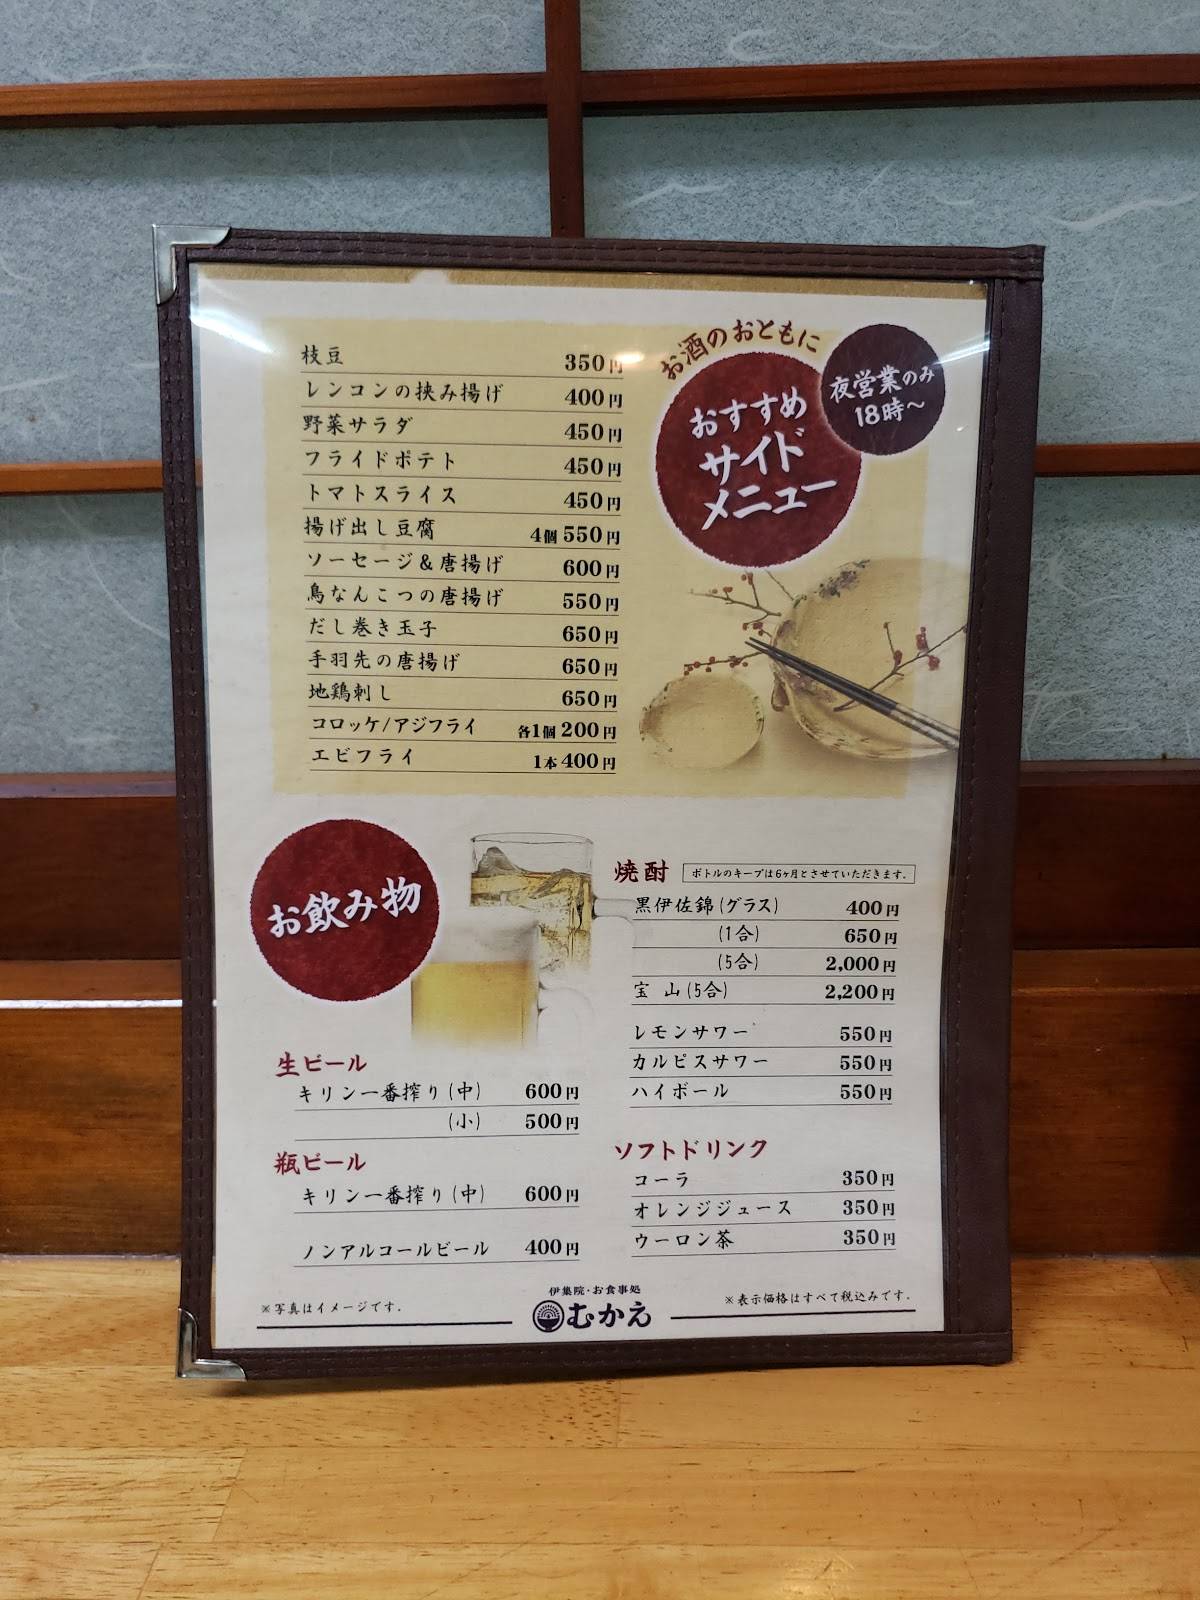 お酒のおともに
おすすめ
サイド
メニュー
夜営業のみ
18時～
枝豆 350円
レンコンの挟み揚げ 400円
野菜サラダ 450円
フライドポテト 450円
トマトスライス 450円
揚げ出し豆腐 4個 550円
ソーセージ&唐揚げ 600円
鳥なんこつの唐揚げ 550円
だし巻き玉子 650円
手羽先の唐揚げ 650円
地鶏刺し 650円
コロッケ/アジフライ 各1個 200円
エビフライ 1本 400円
お飲み物
生ビール
キリン一番搾り(中) 600円
(小) 500円
瓶ビール
キリン一番搾り(中) 600円
ノンアルコールビール 400円
焼酎 ボトルのキープは6ヶ月とさせていただきます。
黒伊佐錦(グラス) 400円
(1合) 650円
(5合) 2,000円
宝 山(5合) 2,200円
レモンサワー 550円
カルピスサワー 550円
ハイボール 550円
ソフトドリンク
コーラ 350円
オレンジジュース 350円
ウーロン茶 350円
※写真はイメージです。
伊集院・お食事処
むかえ
※表示価格はすべて税込みです。